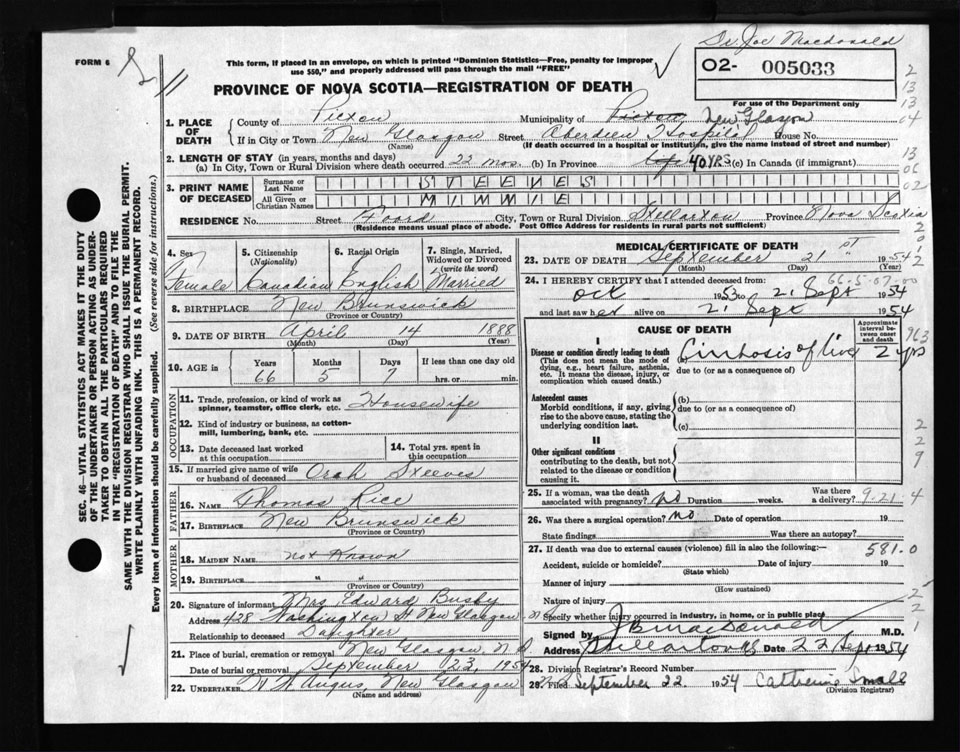 Dr Joe Macdonald
FORM 6
This form, if placed in an envelope, on which is printed "Dominion Statistics—Free, penalty for improper
use $50," and properly addressed will pass through the mail "FREE"
O2- 005033
For use of the Department only
PROVINCE OF NOVA SCOTIA—REGISTRATION OF DEATH
1. PLACE OF DEATH
County of Pictou Municipality of New Glasgow
If in City or Town New Glasgow (Name) Street Aberdeen Hospital House No.
(If death occurred in a hospital or institution, give the name instead of street and number)
2. LENGTH OF STAY (in years, months and days)
(a) In City, Town or Rural Division where death occurred 22 mos. (b) In Province 40 YRS (c) In Canada (if immigrant)
3. PRINT NAME OF DECEASED
Surname or Last Name STEEVES
All Given or Christian Names MINNIE
RESIDENCE No. Street Foord City, Town or Rural Division Stellarton Province Nova Scotia
(Residence means usual place of abode. Post Office Address for residents in rural parts not sufficient)
4. Sex Female
5. Citizenship (Nationality) Canadian
6. Racial Origin English
7. Single, Married, Widowed or Divorced (write the word) Married
8. BIRTHPLACE New Brunswick
(Province or County)
9. DATE OF BIRTH April 14 1888
(Month) (Day) (Year)
10. AGE in Years 66 Months 5 Days 7 If less than one day old hrs. or min.
OCCUPATION
11. Trade, profession, or kind of work as spinner, teamster, office clerk, etc. Housewife
12. Kind of industry or business, as cotton-mill, lumbering, bank, etc.
13. Date deceased last worked at this occupation
14. Total yrs. spent in this occupation
15. If married give name of wife or husband of deceased Orah Steeves
FATHER
16. NAME Thomas Rice
17. BIRTHPLACE New Brunswick
(Province or County)
MOTHER
18. MAIDEN NAME not Known
19. BIRTHPLACE " "
(Province or County)
20. Signature of informant Mrs Edward Busby
Address 428 Washington St New Glasgow
Relationship to deceased Daughter
21. Place of burial, cremation or removal New Glasgow, N.S.
Date of burial or removal September 23, 1954
22. UNDERTAKER W W Angus, New Glasgow
(Name and address)
MEDICAL CERTIFICATE OF DEATH
23. DATE OF DEATH September 21 st 1954
(Month) (Day) (Year)
24. I HEREBY CERTIFY that I attended deceased from:
Oct 1953 to 21 Sept 1954
and last saw her alive on 21 Sept 1954
CAUSE OF DEATH
Approximate interval between onset and death
I
Disease or condition directly leading to death
(This does not mean the mode of dying, e.g., heart failure, asthenia, etc. It means the disease, injury, or complication which caused death.)
(a) Cirrhosis of liver 2 yrs
due to (or as a consequence of)
Antecedent causes
Morbid conditions, if any, giving rise to the above cause, stating the underlying condition last.
(b)
due to (or as a consequence of)
(c)
II
Other significant conditions
contributing to the death, but not related to the disease or condition causing it.
25. If a woman, was the death associated with pregnancy? No Duration weeks. Was there a delivery? 9-21
26. Was there a surgical operation? no Date of operation 19
State findings Was there an autopsy?
27. If death was due to external causes (violence) fill in also the following:— 581.0
Accident, suicide or homicide? Date of injury 19
(State which)
Manner of injury
(How sustained)
Nature of injury
Specify whether injury occurred in industry, in home, or in public place
Signed by J B MacDonald M.D.
Address Stellarton NS Date 22 Sept 1954
28. Division Registrar's Record Number
29. Filed September 22 1954 Catherine Small
(Division Registrar)
SEC. 46—VITAL STATISTICS ACT MAKES IT THE DUTY
OF THE UNDERTAKER OR PERSON ACTING AS UNDER-
TAKER TO OBTAIN ALL THE PARTICULARS REQUIRED
IN THE "REGISTRATION OF DEATH" AND TO FILE THE
SAME WITH THE DIVISION REGISTRAR WHO SHALL ISSUE THE BURIAL PERMIT.
WRITE PLAINLY WITH UNFADING INK. THIS IS A PERMANENT RECORD.
Every item of information should be carefully supplied. (See reverse side for instructions.)